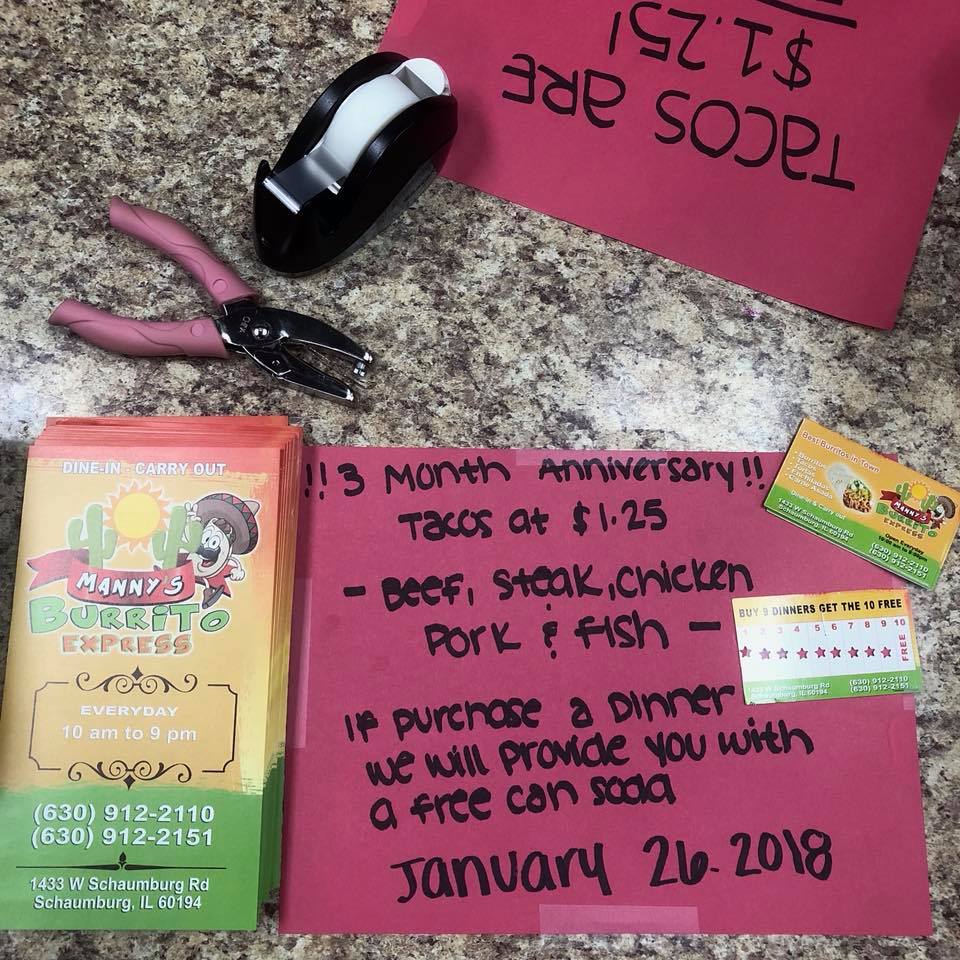 TACOS ARE
$1.25!
DINE-IN - CARRY OUT
MANNY'S
BURRITO
EXPRESS
EVERYDAY
10 am to 9 pm
(630) 912-2110
(630) 912-2151
1433 W Schaumburg Rd
Schaumburg, IL 60194
!!3 Month Anniversary!!
Tacos at $1.25
- Beef, Steak, Chicken
Pork & Fish -
If purchase a Dinner
we will provide you with
a free can soda
January 26. 2018
Best Burritos in Town
• Burritos
• Tacos
• Tortas
• Enchiladas
• Carne Asada
Dine-in & Carry out
1433 W Schaumburg Rd
Schaumburg, IL 60194
MANNY'S
BURRITO
EXPRESS
Open Everyday
(630) 912-2110
(630) 912-2151
BUY 9 DINNERS GET THE 10 FREE
1 2 3 4 5 6 7 8 9 10
FREE
1433 W Schaumburg Rd
Schaumburg, IL 60194
(630) 912-2110
(630) 912-2151